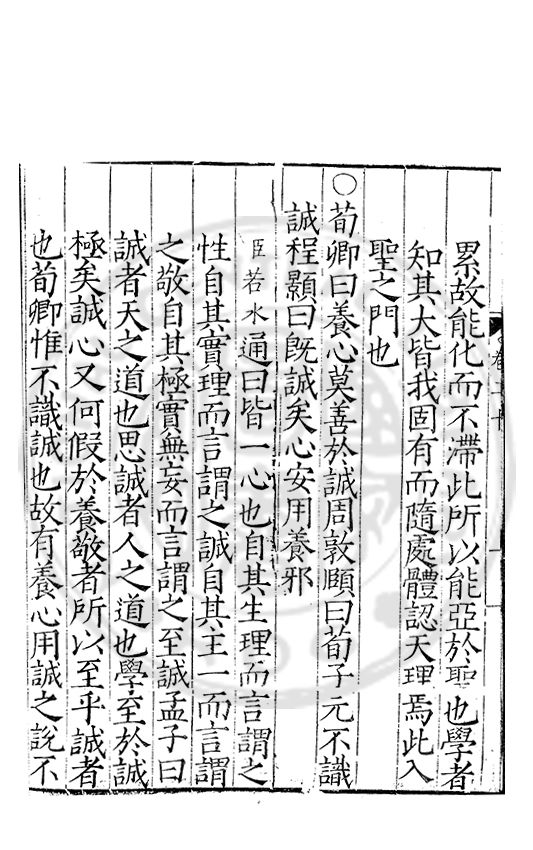 累故能化而不滯此所以能亞於聖也學者
知其大皆我固有而隨處體認天理焉此入
聖之門也
○荀卿曰養心莫善於誠周敦頤曰荀子元不識
誠程顥曰旣誠矣心安用養邪
臣若水通曰皆一心也自其生理而言謂之
性自其實理而言謂之誠自其主一而言謂
之敬自其極實無妄而言謂之至誠孟子曰
誠者天之道也思誠者人之道也學至於誠
極矣誠心又何假於養敬者所以至乎誠者
也荀卿惟不識誠也故有養心用誠之說不